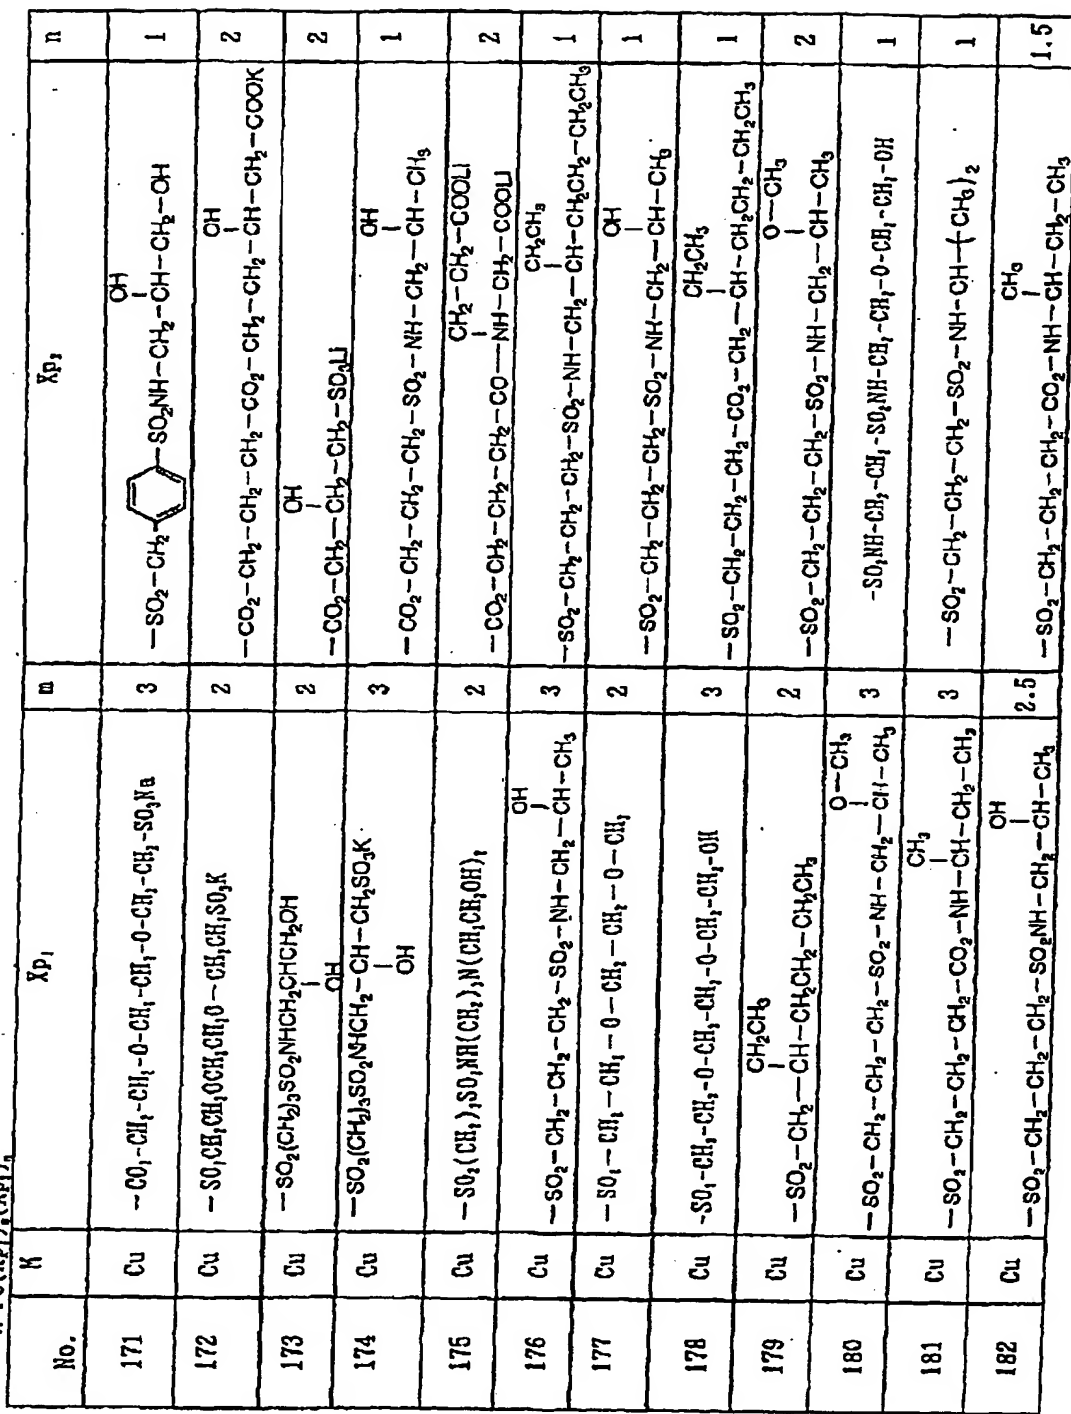 No. M Xp₁ m Xp₂ n
171 Cu －CO₂-CH₂-CH₂-O-CH₂-CH₂-O-CH₂-CH₂-SO₃Na 3 －SO₂－CH₂－ －SO₂NH－CH₂－CH(OH)－CH₂－OH 1
172 Cu －SO₂CH₂CH₂CH₂OCH₂CH₂O－CH₂CH₂SO₃K 2 －CO₂－CH₂－CH₂－CH₂－CO₂－CH₂－CH₂－CH(OH)－CH₂－COOK 2
173 Cu －SO₂(CH₂)₃SO₂NHCH₂CH(OH)CH₂OH 2 －CO₂－CH₂－CH(OH)－CH₂－CH₂－SO₃Li 2
174 Cu －SO₂(CH₂)₃SO₂NHCH₂－CH(OH)－CH₂SO₃K 3 －CO₂－CH₂－CH₂－CH₂－SO₂－NH－CH₂－CH(OH)－CH₃ 1
175 Cu －SO₂(CH₂)₃SO₂NH(CH₂)₃N(CH₂CH₂OH)₂ 2 －CO₂－CH₂－CH₂－CH₂－CO－NH(CH₂－CH₂－COOLi)－CH₂－COOLi 2
176 Cu －SO₂－CH₂－CH₂－CH₂－SO₂－NH－CH₂－CH(OH)－CH₃ 3 －SO₂－CH₂－CH₂－CH₂－SO₂－NH－CH₂－CH(CH₂CH₃)－CH₂CH₂－CH₂CH₃ 1
177 Cu －SO₂－CH₂－CH₂－O－CH₂－CH₂－O－CH₃ 2 －SO₂－CH₂－CH₂－CH₂－SO₂－NH－CH₂－CH(OH)－CH₃ 1
178 Cu -SO₂-CH₂-CH₂-O-CH₂-CH₂-O-CH₂-CH₂-OH 3 －SO₂－CH₂－CH₂－CH₂－CO₂－CH₂－CH(CH₂CH₃)－CH₂CH₂－CH₂CH₃ 1
179 Cu －SO₂－CH₂－CH(CH₂CH₃)－CH₂CH₂－CH₂CH₃ 2 －SO₂－CH₂－CH₂－CH₂－SO₂－NH－CH₂－CH(O－CH₃)－CH₃ 2
180 Cu －SO₂－CH₂－CH₂－CH₂－SO₂－NH－CH₂－CH(O－CH₃)－CH₃ 3 -SO₂NH-CH₂-CH₂-SO₂NH-CH₂-CH₂-O-CH₂-CH₂-OH 1
181 Cu －SO₂－CH₂－CH₂－CH₂－CO₂－NH－CH(CH₃)－CH₂－CH₃ 3 －SO₂－CH₂－CH₂－CH₂－SO₂－NH－CH－(CH₃)₂ 1
182 Cu －SO₂－CH₂－CH₂－CH₂－SO₂NH－CH₂－CH(OH)－CH₃ 2.5 －SO₂－CH₂－CH₂－CH₂－CO₂－NH－CH(CH₃)－CH₂－CH₃ 1.5